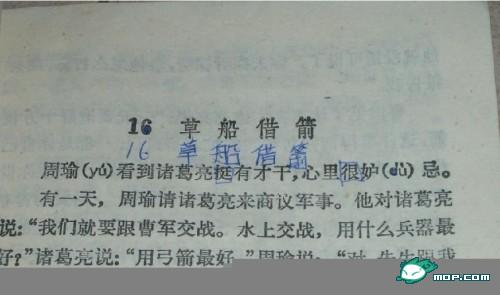 16 草船借箭
16 草船借箭
周瑜(yú)看到诸葛亮挺有才干,心里很妒(dù)忌。
有一天,周瑜请诸葛亮来商议军事。他对诸葛亮
说:“我们就要跟曹军交战。水上交战,用什么兵器最
好?”诸葛亮说:“用弓箭最好。”周瑜说:“对,先生跟我
MOP.COM